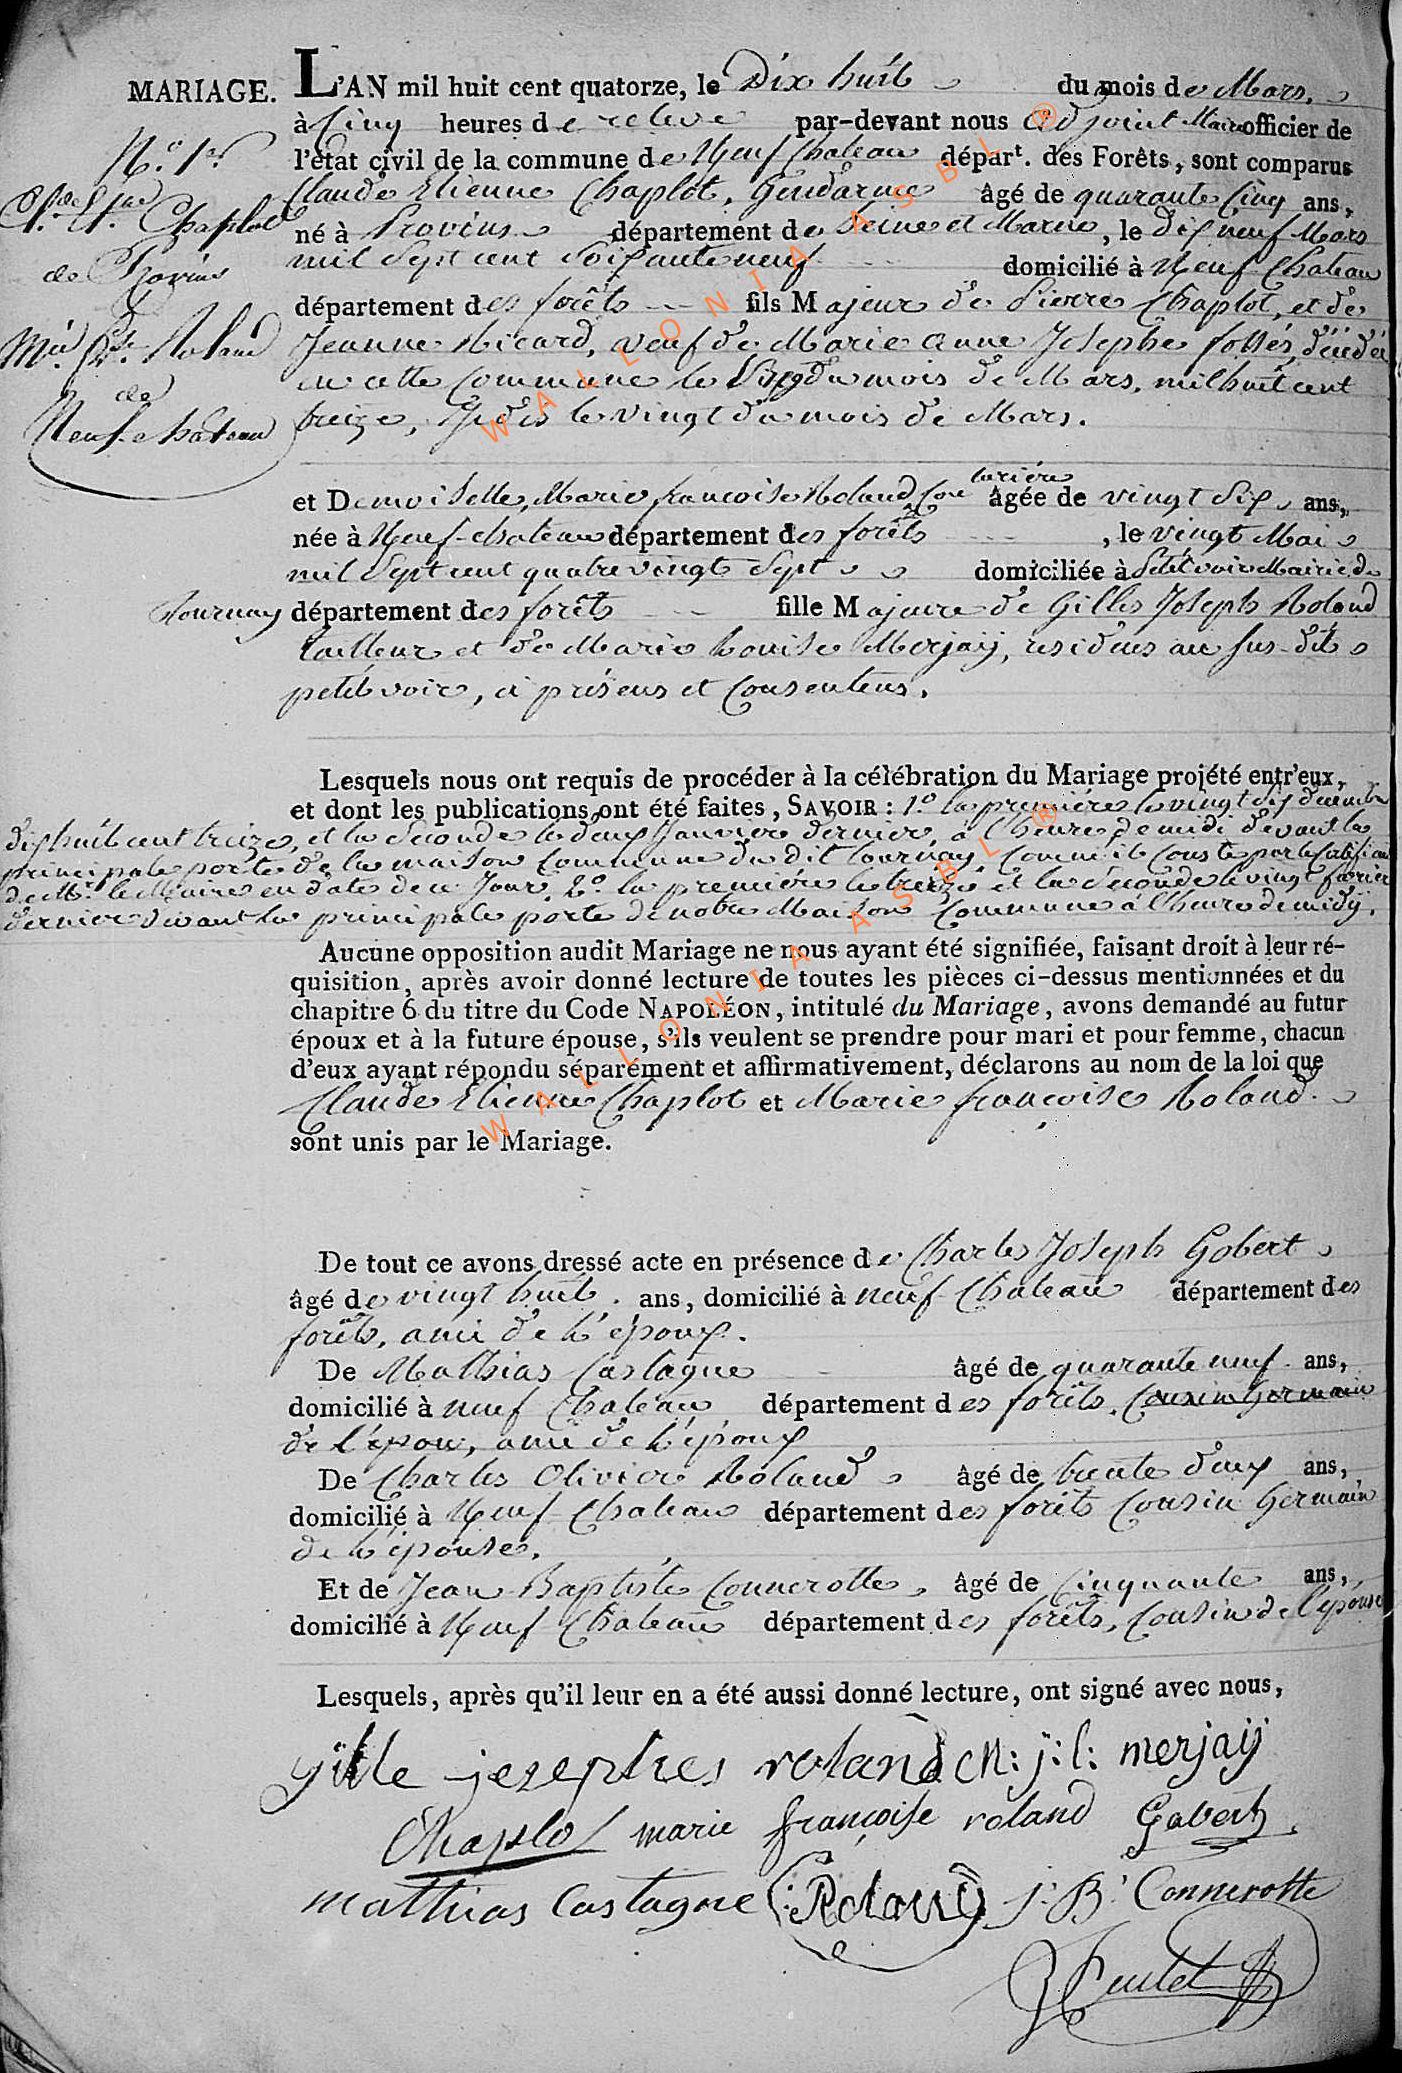 MARIAGE.
L'AN mil huit cent quatorze, le Dix huit du mois de Mars,
à Cinq heures de releve par-devant nous adjoint Maire officier de
l'état civil de la commune de Neuf Chateau départ. des Forêts, sont comparus
Claude Etienne Chaplot, Gendarme âgé de quarante Cinq ans,
né à Provins département de Seine et Marne, le dix neuf Mars
mil Sept cent Soixante neuf domicilié à Neuf Chateau
département des forêts fils Majeur de Pierre Chaplot, et de
Jeanne Nicard, veuf de Marie anne Josephe fossés, décédée
en cette Commune le du mois de Mars, mil huit cent
treize, le vingt du mois de Mars.
N.º 1er
Chaplot
de Provins
Roland
de
Neufchateau
et Demoiselle, Marie françoise Roland Couturière âgée de vingt Six ans,
née à Neuf-chateau département des forêts, le vingt Mai
mil Sept cent quatre vingt Sept domiciliée à Petitvoir Mairie de
Tournay département des forêts fille Majeure de Gilles Joseph Roland
tailleur et de Marie Louise Merjaij, residens au Sus-dit
petitvoir, à présens et Consentens.
Lesquels nous ont requis de procéder à la célébration du Mariage projété entr'eux,
et dont les publications ont été faites, SAVOIR : 1.º la première le vingt Six decembre
dix huit cent treize, et la Seconde le deux Janvier dernier, à l'heure de midi devant la
principale porte de la maison Commune du dit tournay Comme il Conste par le Certificat
de Mr. le Maire en date de ce Jour, 2.º la première le treize et la Seconde le vingt fevrier
dernier devant la principale porte de notre Maison Commune à l'heure de midij.
Aucune opposition audit Mariage ne nous ayant été signifiée, faisant droit à leur ré-
quisition, après avoir donné lecture de toutes les pièces ci-dessus mentionnées et du
chapitre 6 du titre du Code NAPOLÉON, intitulé du Mariage, avons demandé au futur
époux et à la future épouse, s'ils veulent se prendre pour mari et pour femme, chacun
d'eux ayant répondu séparément et affirmativement, déclarons au nom de la loi que
Claude Etienne Chaplot et Marie françoise Roland.
sont unis par le Mariage.
De tout ce avons dressé acte en présence de Charles Joseph Gobert
âgé de vingt huit ans, domicilié à neuf Chateau département des
forêts, ami de l'époux.
De Mathias Castagne âgé de quarante neuf ans,
domicilié à neuf Chateau département des forêts, Cousin Germain
de l'epou, ami de l'époux
De Charles Olivier Roland âgé de trente deux ans,
domicilié à Neuf Chateau département des forêts Cousin Germain
de l'épouse.
Et de Jean Baptiste Connerotte, âgé de Cinquante ans,
domicilié à Neuf Chateau département des forêts, Cousin de l'epouse
Lesquels, après qu'il leur en a été aussi donné lecture, ont signé avec nous,
gille jesephes roland M: j: l: merjaij
Chaplot marie françoise roland Gobert
mathias Castagne Roland J: B: Connerotte
WALLONIA ASBL ®
WALLONIA ASBL ®